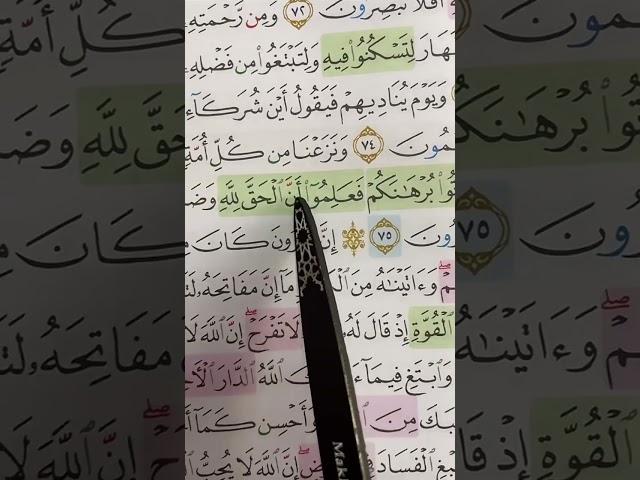 أفلا تبصرون ٧٢ ومن رحمته
لتسكنوا فيه ولتبتغوا من فضله
ويوم يناديهم فيقول أين شركاء
ـمون ٧٤ ونزعنا من كل أمة
ـوا برهانكم فعلموا أن الحق لله وضـ
ـرون ٧٥ كان مـ
وءاتيناه من ما إن مفاتحه لتـ
القوة إذ قال له لا تفرح إن الله لا
وابتغ فيما الله الدار الأخـ
ـبك من وأحسن كما أ
ـبغ الفساد إن الله لا يحب
Mak